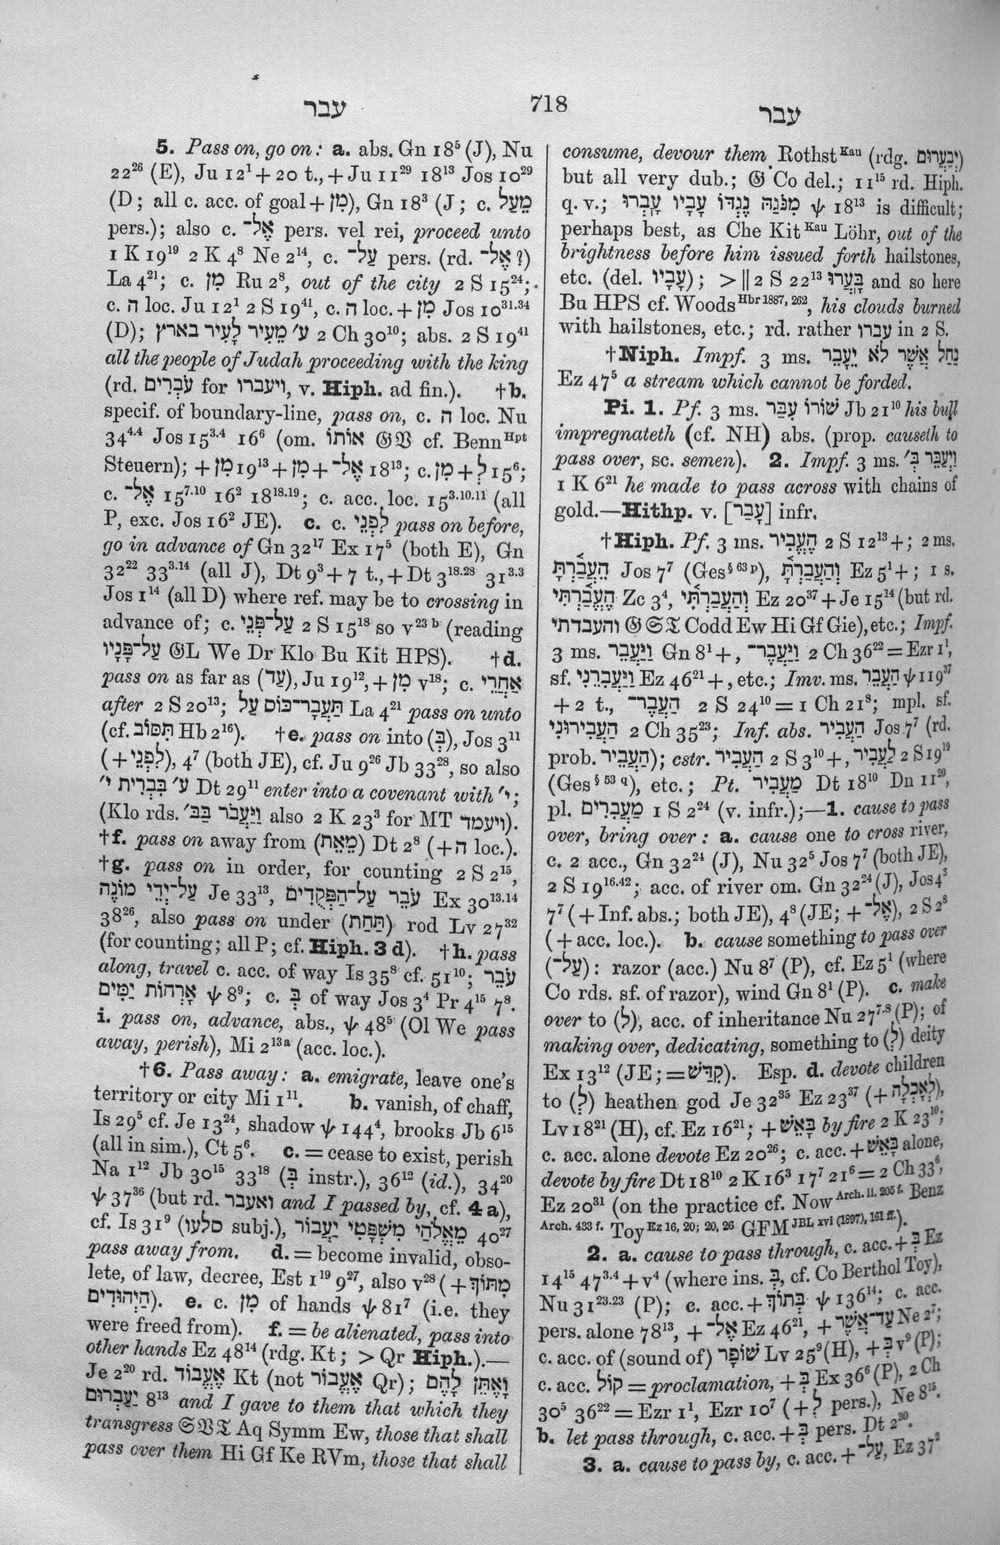 עבר
718
עבר
5. Pass on, go on: a. abs. Gn 18⁵ (J), Nu
22²⁶ (E), Ju 12¹ + 20 t., + Ju 11²⁹ 18¹³ Jos 10²⁹
(D; all c. acc. of goal + מִן), Gn 18³ (J; c. מֵעַל
pers.); also c. אֶל־ pers. vel rei, proceed unto
1 K 19¹⁹ 2 K 4⁸ Ne 2¹⁴, c. עַל־ pers. (rd. אֶל־?)
La 4²¹; c. מִן Ru 2⁸, out of the city 2 S 15²⁴;
c. ה loc. Ju 12¹ 2 S 19⁴¹, c. ה loc. + מִן Jos 10³¹·³⁴
(D); ע׳ מֵעִיר לָעִיר בארץ 2 Ch 30¹⁰; abs. 2 S 19⁴¹
all the people of Judah proceeding with the king
(rd. עֹבְרִים for ויעברו, v. Hiph. ad fin.). †b.
specif. of boundary-line, pass on, c. ה loc. Nu
34⁴·⁴ Jos 15³·⁴ 16⁶ (om. אוֹתוֹ 𝔊𝔙 cf. Benn Hpt
Steuern); + מִן 19¹³ + מִן + אֶל־ 18¹³; c. מִן + לְ 15⁶;
c. אֶל־ 15⁷·¹⁰ 16² 18¹⁸·¹⁹; c. acc. loc. 15³·¹⁰·¹¹ (all
P, exc. Jos 16² JE). c. c. לִפְנֵי pass on before,
go in advance of Gn 32¹⁷ Ex 17⁵ (both E), Gn
32²² 33³·¹⁴ (all J), Dt 9³ + 7 t., + Dt 3¹⁸·²⁸ 31³·³
Jos 1¹⁴ (all D) where ref. may be to crossing in
advance of; c. עַל־פְּנֵי 2 S 15¹⁸ so v²³ ᵇ (reading
עַל־פָּנָיו 𝔊L We Dr Klo Bu Kit HPS). †d.
pass on as far as (עַד), Ju 19¹², + מִן v¹⁸; c. אַחֲרֵי
after 2 S 20¹³; עַל תַּעֲבָר־כּוֹם La 4²¹ pass on unto
(cf. תִּסּוֹב Hb 2¹⁶). †e. pass on into (בְּ), Jos 3¹¹
(+ לִפְנֵי), 4⁷ (both JE), cf. Ju 9²⁶ Jb 33²⁸, so also
ע׳ בִּבְרִית י׳ Dt 29¹¹ enter into a covenant with י׳;
(Klo rds. וַיַּעֲבֹר בַּבּ׳ also 2 K 23³ for MT ויעמד).
†f. pass on away from (מֵאֵת) Dt 2⁸ (+ ה loc.).
†g. pass on in order, for counting 2 S 2¹⁵,
עַל־יְדֵי מוֹנֶה Je 33¹³, עֹבֵר עַל־הַפְּקֻדִים Ex 30¹³·¹⁴
38²⁶, also pass on under (תַּחַת) rod Lv 27³²
(for counting; all P; cf. Hiph. 3 d). †h. pass
along, travel c. acc. of way Is 35⁸ cf. 51¹⁰; עֹבֵר
אָרְחוֹת יַמִּים ψ 8⁹; c. בְּ of way Jos 3⁴ Pr 4¹⁵ 7⁸.
i. pass on, advance, abs., ψ 48⁵ (Ol We pass
away, perish), Mi 2¹³ᵃ (acc. loc.).
†6. Pass away: a. emigrate, leave one's
territory or city Mi 1¹¹. b. vanish, of chaff,
Is 29⁵ cf. Je 13²⁴, shadow ψ 144⁴, brooks Jb 6¹⁵
(all in sim.), Ct 5⁶. c. = cease to exist, perish
Na 1¹² Jb 30¹⁵ 33¹⁸ (בְּ instr.), 36¹² (id.), 34²⁰
ψ 37³⁶ (but rd. ואעבר and I passed by, cf. 4 a),
cf. Is 31⁹ (סלעו subj.), מֵאֱלֹהַי מִשְׁפָּטִי יַעֲבוֹר 40²⁷
pass away from. d. = become invalid, obso-
lete, of law, decree, Est 1¹⁹ 9²⁷, also v²⁸ (+ מִתּוֹךְ
הַיְּהוּדִים). e. c. מִן of hands ψ 81⁷ (i.e. they
were freed from). f. = be alienated, pass into
other hands Ez 48¹⁴ (rdg. Kt; > Qr Hiph.).—
Je 2²⁰ rd. אֶעֱבוֹד Kt (not אֶעֱבוֹר Qr); וָאֶתֵּן לָהֶם
יַעַבְרוּם 8¹³ and I gave to them that which they
transgress 𝔖𝔙𝔗 Aq Symm Ew, those that shall
pass over them Hi Gf Ke RVm, those that shall
consume, devour them Rothst Kau (rdg. יְבַעֲרוּם)
but all very dub.; 𝔊 Co del.; 11¹⁵ rd. Hiph.
q. v.; מִנֹּגַהּ נֶגְדּוֹ עָבָיו עָֽבְרוּ ψ 18¹³ is difficult;
perhaps best, as Che Kit Kau Löhr, out of the
brightness before him issued forth hailstones,
etc. (del. עָבָיו); > ‖ 2 S 22¹³ בָּעֲרוּ and so here
Bu HPS cf. Woods Hbr 1887, 262, his clouds burned
with hailstones, etc.; rd. rather עברו in 2 S.
†Niph. Impf. 3 ms. נַחַל אֲשֶׁר לֹא יֵעָבֵר
Ez 47⁵ a stream which cannot be forded.
Pi. 1. Pf. 3 ms. שׁוֹרוֹ עִבַּר Jb 21¹⁰ his bull
impregnateth (cf. NH) abs. (prop. causeth to
pass over, sc. semen). 2. Impf. 3 ms. וַיְעַבֵּר בְּ׳
1 K 6²¹ he made to pass across with chains of
gold.—Hithp. v. [עבר] infr.
†Hiph. Pf. 3 ms. הֶעֱבִיר 2 S 12¹³ +; 2 ms.
הֵעֲבַרְתָּ Jos 7⁷ (Ges § 63 p), וְהַעֲבַרְתָּ Ez 5¹ +; 1 s.
הֶעֱבַרְתִּי Zc 3⁴, וְהַעֲבַרְתִּי Ez 20³⁷ + Je 15¹⁴ (but rd.
והעבדתי 𝔊𝔖𝔗 Codd Ew Hi Gf Gie), etc.; Impf.
3 ms. וַיַּעֲבֵר Gn 8¹ +, וַיַּעֲבֶר־ 2 Ch 36²² = Ezr 1¹,
sf. וַיַּעֲבִרֵנִי Ez 46²¹ +, etc.; Imv. ms. הַעֲבֵר ψ 119³⁷
+ 2 t., הַעֲבֶר־ 2 S 24¹⁰ = 1 Ch 21⁸; mpl. sf.
הַעֲבִירוּנִי 2 Ch 35²³; Inf. abs. הַעֲבִיר Jos 7⁷ (rd.
prob. הַעֲבֵיר); cstr. הַעֲבִיר 2 S 3¹⁰ +, לַעֲבִיר 2 S 19¹⁹
(Ges § 53 q), etc.; Pt. מַעֲבִיר Dt 18¹⁰ Dn 11²⁰,
pl. מַעֲבִרִים 1 S 2²⁴ (v. infr.);—1. cause to pass
over, bring over: a. cause one to cross river,
c. 2 acc., Gn 32²⁴ (J), Nu 32⁵ Jos 7⁷ (both JE),
2 S 19¹⁶·⁴²; acc. of river om. Gn 32²⁴ (J), Jos 4³
7⁷ (+ Inf. abs.; both JE), 4⁸ (JE; + אֶל־), 2 S 2⁸
(+ acc. loc.). b. cause something to pass over
(עַל־): razor (acc.) Nu 8⁷ (P), cf. Ez 5¹ (where
Co rds. sf. of razor), wind Gn 8¹ (P). c. make
over to (לְ), acc. of inheritance Nu 27⁷·⁸ (P); of
making over, dedicating, something to (לְ) deity
Ex 13¹² (JE; = קִדֵּשׁ). Esp. d. devote children
to (לְ) heathen god Je 32³⁵ Ez 23³⁷ (+ לְאָכְלָה),
Lv 18²¹ (H), cf. Ez 16²¹; + בָּאֵשׁ by fire 2 K 23¹⁰;
c. acc. alone devote Ez 20²⁶; c. acc. + בָּאֵשׁ alone,
devote by fire Dt 18¹⁰ 2 K 16³ 17¹⁷ 21⁶ = 2 Ch 33⁶,
Ez 20³¹ (on the practice cf. Now Arch. II. 205 f. Benz
Arch. 433 f. Toy Ez 16, 20; 20, 26 GFM JBL xvi (1897), 161 ff.).
2. a. cause to pass through, c. acc. + בְּ Ez
14¹⁵ 47³·⁴ + v⁴ (where ins. בְּ, cf. Co Berthol Toy),
Nu 31²³·²³ (P); c. acc. + בְּתוֹךְ ψ 136¹⁴; c. acc.
pers. alone 78¹³, + אֶל־ Ez 46²¹, + עַד־אֲשֶׁר Ne 2⁷;
c. acc. of (sound of) שׁוֹפָר Lv 25⁹ (H), + בְּ v⁹ (P);
c. acc. קוֹל = proclamation, + בְּ Ex 36⁶ (P), 2 Ch
30⁵ 36²² = Ezr 1¹, Ezr 10⁷ (+ לְ pers.), Ne 8¹⁵.
b. let pass through, c. acc. + בְּ pers. Dt 2³⁰.
3. a. cause to pass by, c. acc. + עַל־, Ez 37²